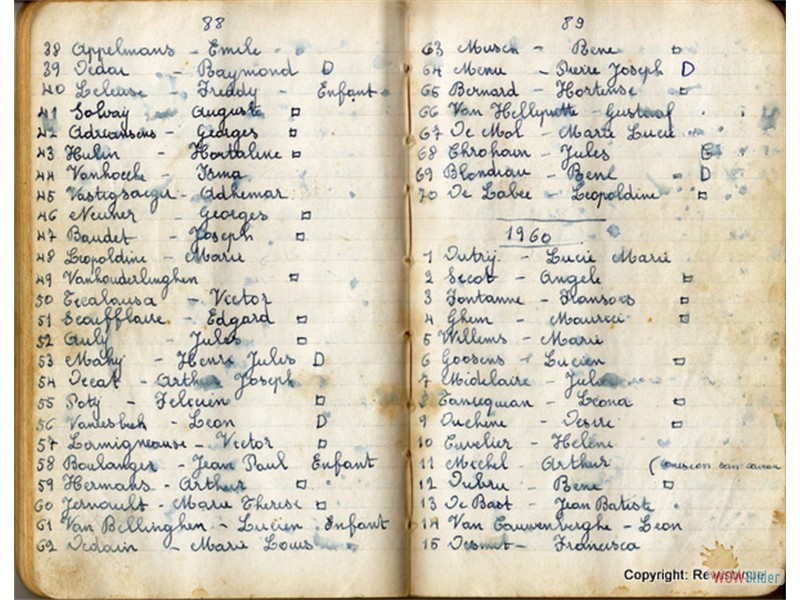 88
38 Appelmans - Emile
39 Dedoi - Raymond D
40 Deleuse - Freddy - Enfant
41 Solvay - Auguste □
42 Adreansens - Georges □
43 Hulin - Hortaline □
44 Vanhoecke - Irma
45 Vastegsaeger - Adhemar
46 Neuner - Georges □
47 Baudet - Joseph □
48 Leopoldine - Marie
49 Vanhouderlinghen □
50 - Victor
51 Scoufflaire - Edgard □
52 Auly - Jules □
53 Mahy - Henri Jules D
54 Decat - Arthur Joseph
55 Poty - Felicien □
56 - Leon D
57 Lermigneause - Victor □
58 Boulanger - Jean Paul Enfant
59 Hermans - Arthur □
60 Jernault - Marie Therese □
61 Van Bellinghen - Lucien Enfant
62 Dedain - Marie Louis
89
63 Musch - Rene □
64 Menu - Pierre Joseph D
65 Bernard - Hortense □
66 Van Helleputte - Gustaaf
67 De Mol - Marie Lucie
68 - Jules E
69 Blondiau - Rene D
70 De Labee - Leopoldine □
1960
1 Dutrij - Lucie Marie
2 Secot - Angele □
3 Fontanne - Fransoes □
4 Ghem - Maurice □
5 Willems - Marie
6 Goosens - Lucien □
7 Midelaire - Julia
8 Tanneguan - Leona □
9 Duchene - Desire □
10 Cuvelier - Helene
11 Michel - Arthur
12 Dubru - Rene □
13 De Bast - Jean Batiste
14 Van Cauwenberghe - Leon
15 Desmet - Francisca
Copyright:
WOWSlider